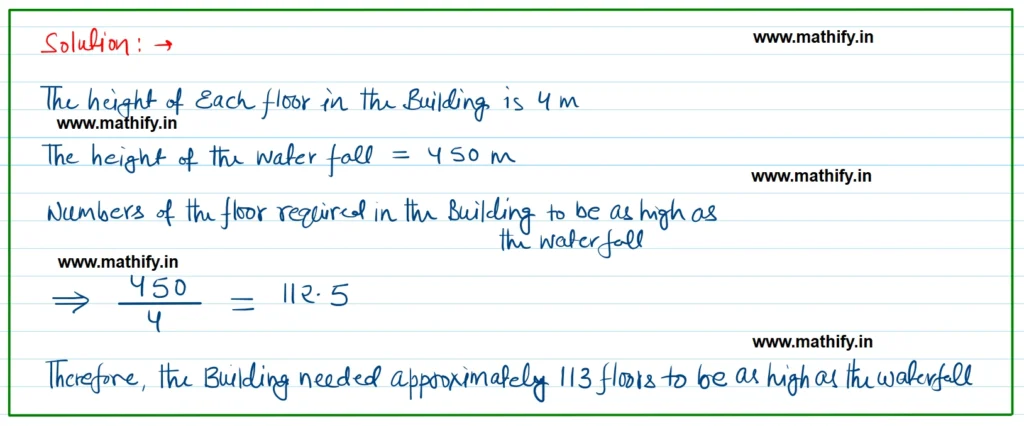 Solution: →
www.mathify.in
The height of Each floor in the Building is 4 m
www.mathify.in
The height of the water fall = 450 m
www.mathify.in
Numbers of the floor required in the Building to be as high as
the waterfall
www.mathify.in
⇒ 450/4 = 112.5
www.mathify.in
Therefore, the Building needed approximately 113 floors to be as high as the waterfall